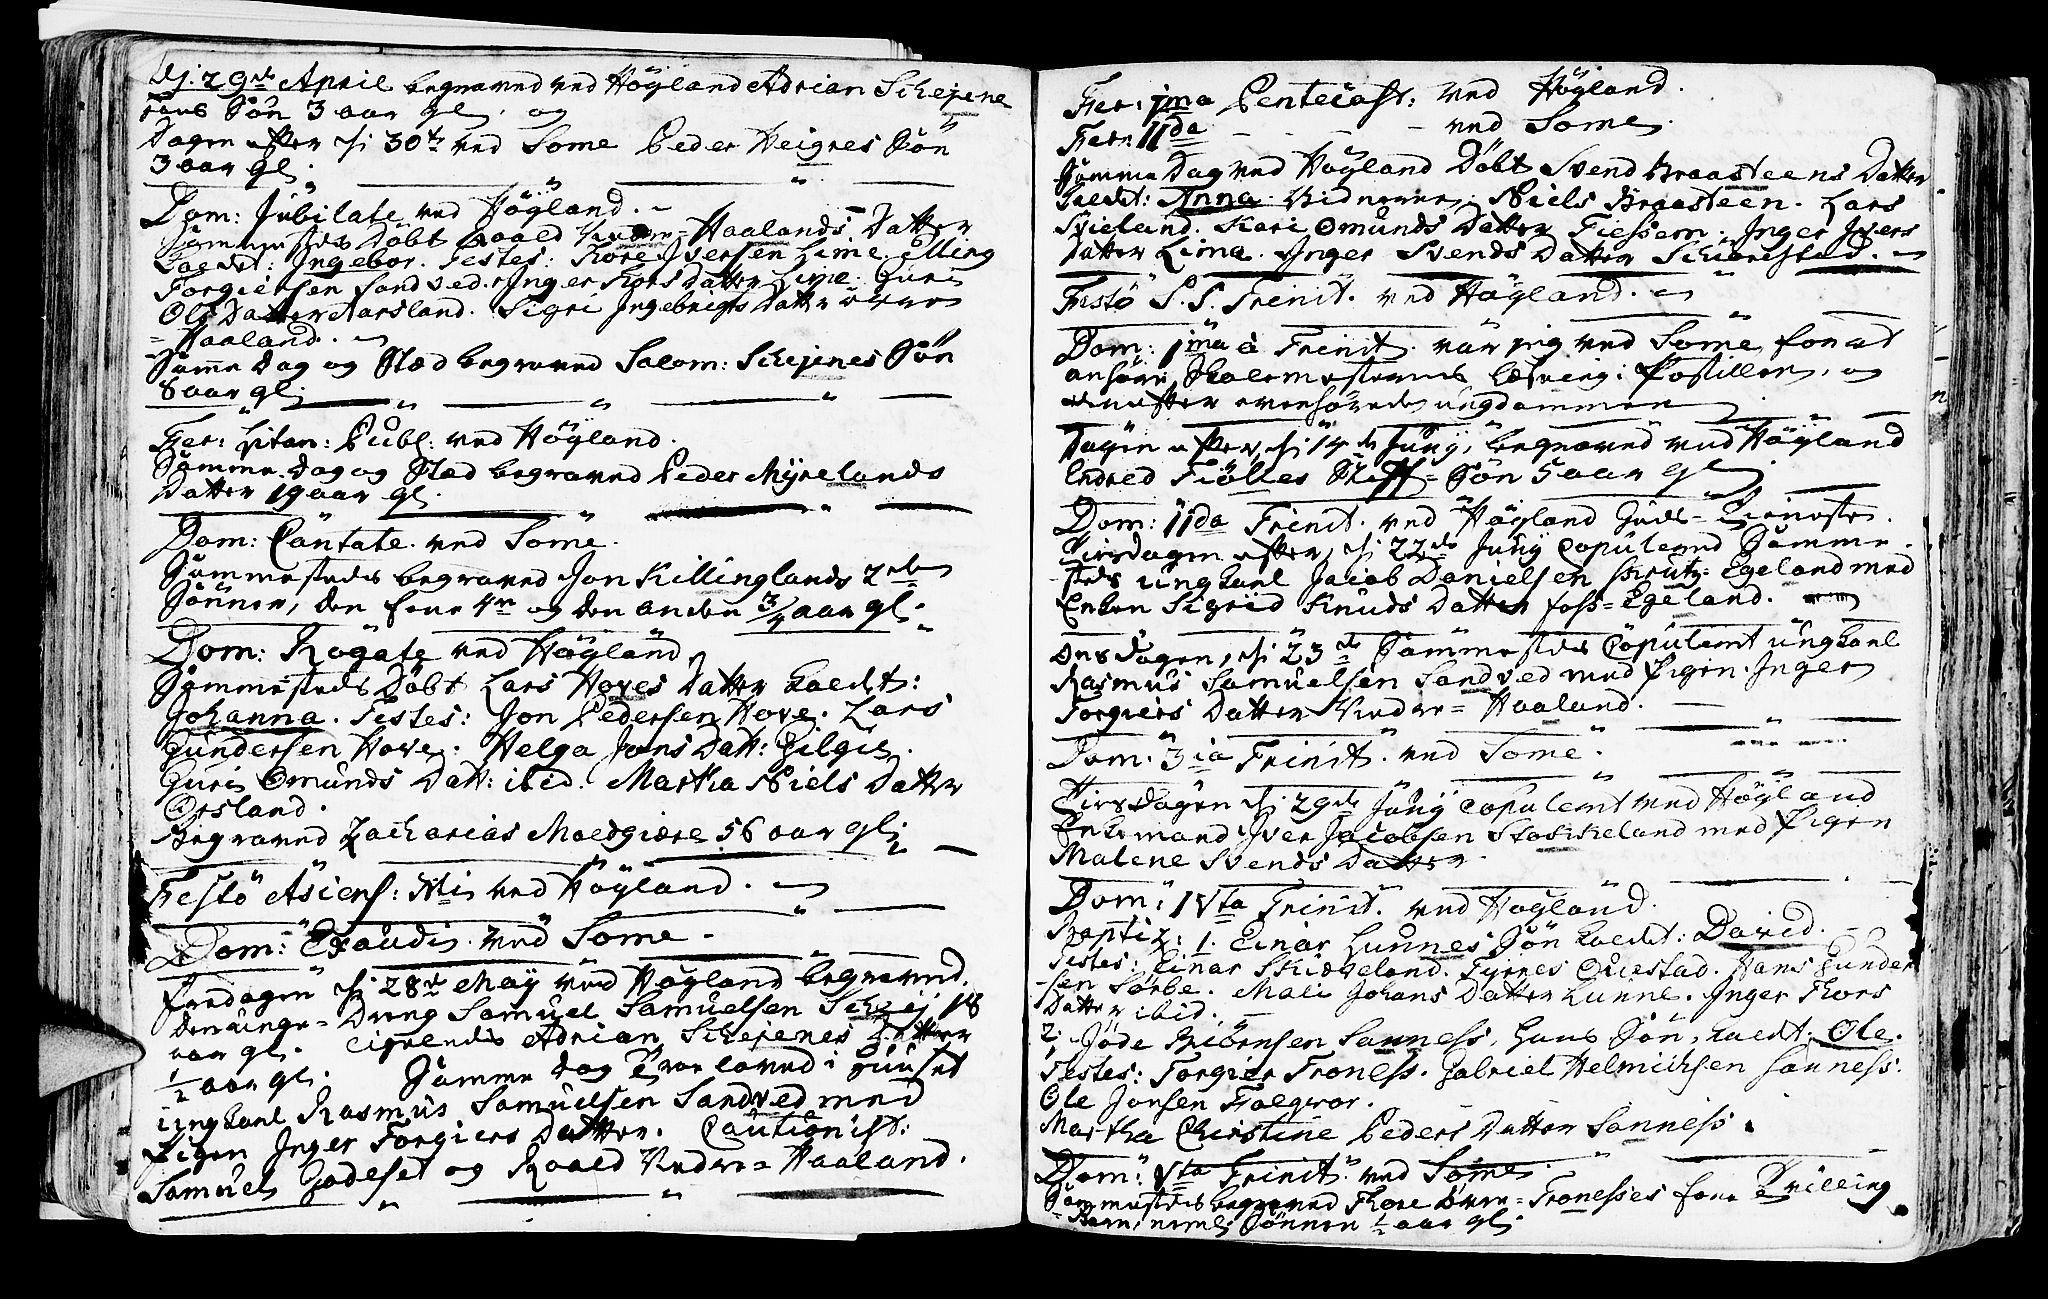 Dj. 29de April begraved ved Höyland Adrian Schejene
hans Sön 3 aar gl. og
Dagen efter dj 30te ved Some Peder Heigres Sön
3 aar gl.
Dom: Jübilate ved Höyland.
Sammestedts Döbt Roald Nedre=Haalands Datter
kaldet: Ingebor. Testes: Tore Iversen Lime. Elling
Torgiersen Sandved. Inger Tors Datter Lime. Guri
Ols Datter Aarsland. Sigri Ingebrigts Datter
=Haaland.
Samme Dag og Stæd begraved Salom: Schejenes Sön
8 aar gl.
Fer: Litan: Publ: ved Höyland.
Samme Dag og Stæd begraved Peder Myhelands
Datter 19 aar gl.
Dom: Cantate ved Some.
Sammestedts begraved Jon Killinglands 2de
Sönner, den fær 4re og den anden 3/4 aar gl.
Dom: Rogate ved Höyland
Sammestedts Döbt Lars Hoves Datter kaldt:
Johanna. Testes: Jon Pedersen Hove. Lars
Gundersen Hove. Helga Jons Datt: Gilgie.
Guri Omunds Datt: ibid. Martha Niels Datter
Orsland.
Begraved Zacharias Moedgiære 56 aar gl.
Festo Asiens: Xti ved Höyland.
Dom: Exaudi ved Some.
fredagen dj 28de May ved Höyland begraved
den unge= Dreng Samuel Samuelsen Schej 18
aar gl. eigledes Adrian Schejenes Datter
1/2 aar gl. Samme Dag trolaved i huuset
ungkarl Rasmus Samuelsen Sandved med
Pigen Inger Torgiers Datter. Cautionist:
Samuel Jadeset og Roald Nedre=Haaland.
Fer: 1ma Pentecost: ved Höyland.
Fer: IIda - - - ved Some.
Samme Dag ved Höyland Döbt Svend Braasteens Datter
kaldt: Anna. Vidnerne: Niels Braasteen. Lars
Svieland. Kari Omunds Datter Tiessem. Inger Ivers
Datter Lima. Inger Svends Datter Schiærestad.
Festo S. S. Trinit. ved Höyland.
Dom: 1ma à Trinit. var jeg ved Some for at
anhöre Skolemesterens læsning i Postillen, og
derefter overhörede ungdommen
Dagen efter, dj 14de Juny, begraved ved Höyland
Endred Tiöltes Stiff=Sön 5 aar gl
Dom: IIda Trinit. ved Höyland Guds=Tienneste.
Tirsdagen efter, dj 22de Juny Copulered Samme-
steds ungkarl Jacob Danielsen Skrutz: Egeland med
Enken Sigrid Knuds Datter Foss=Egeland.
Onsdagen, dj 23de Sammesteds Copuleret ungkarl
Rasmus Samuelsen Sandved med Pigen Inger
Torgiers Datter Nedre=Haaland.
Dom: 3ia Trinit. ved Some.
Tirsdagen dj 29de Juny Copuleret ved Höyland
Enkemand Iver Jacobsen Stokkeland med Pigen
Malene Svends Datter
Dom: IVta Trinit. ved Höyland.
Baptiz: 1. Einar Lunnes Sön kaldt: David.
Testes: Einar Skiæveland. Tyrnes Oluestad. Hans Gunder
sen Sørbe. Mali Johans Datter Lunne. Inger Thors
Datter ibid.
2. Jöde Biörnsen Sanness, hans Sön, kaldt: Ole.
Testes: Torgier Troness. Gabriel Helmichsen Sanness.
Ole Jonsen Traegvar.
Martha Christine Peders Datter Sanness.
Dom: Vta Trinit: ved Some.
Sammesteds begraved Thore Övre=Tronesses fær Tvilling
Børn, neml. Sönnen 1/2 aar gl.